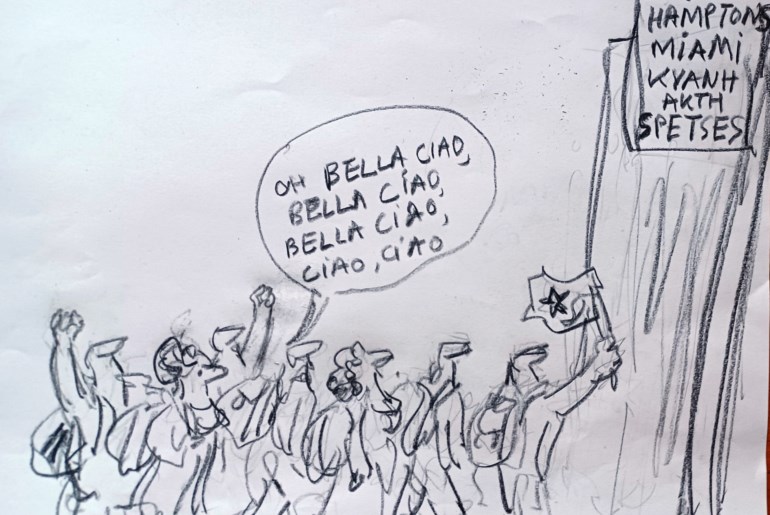 HAMPTONS
MIAMI
ΚΥΑΝΗ
ΑΚΤΗ
SPETSES
OH BELLA CIAO,
BELLA CIAO,
BELLA CIAO,
CIAO, CIAO